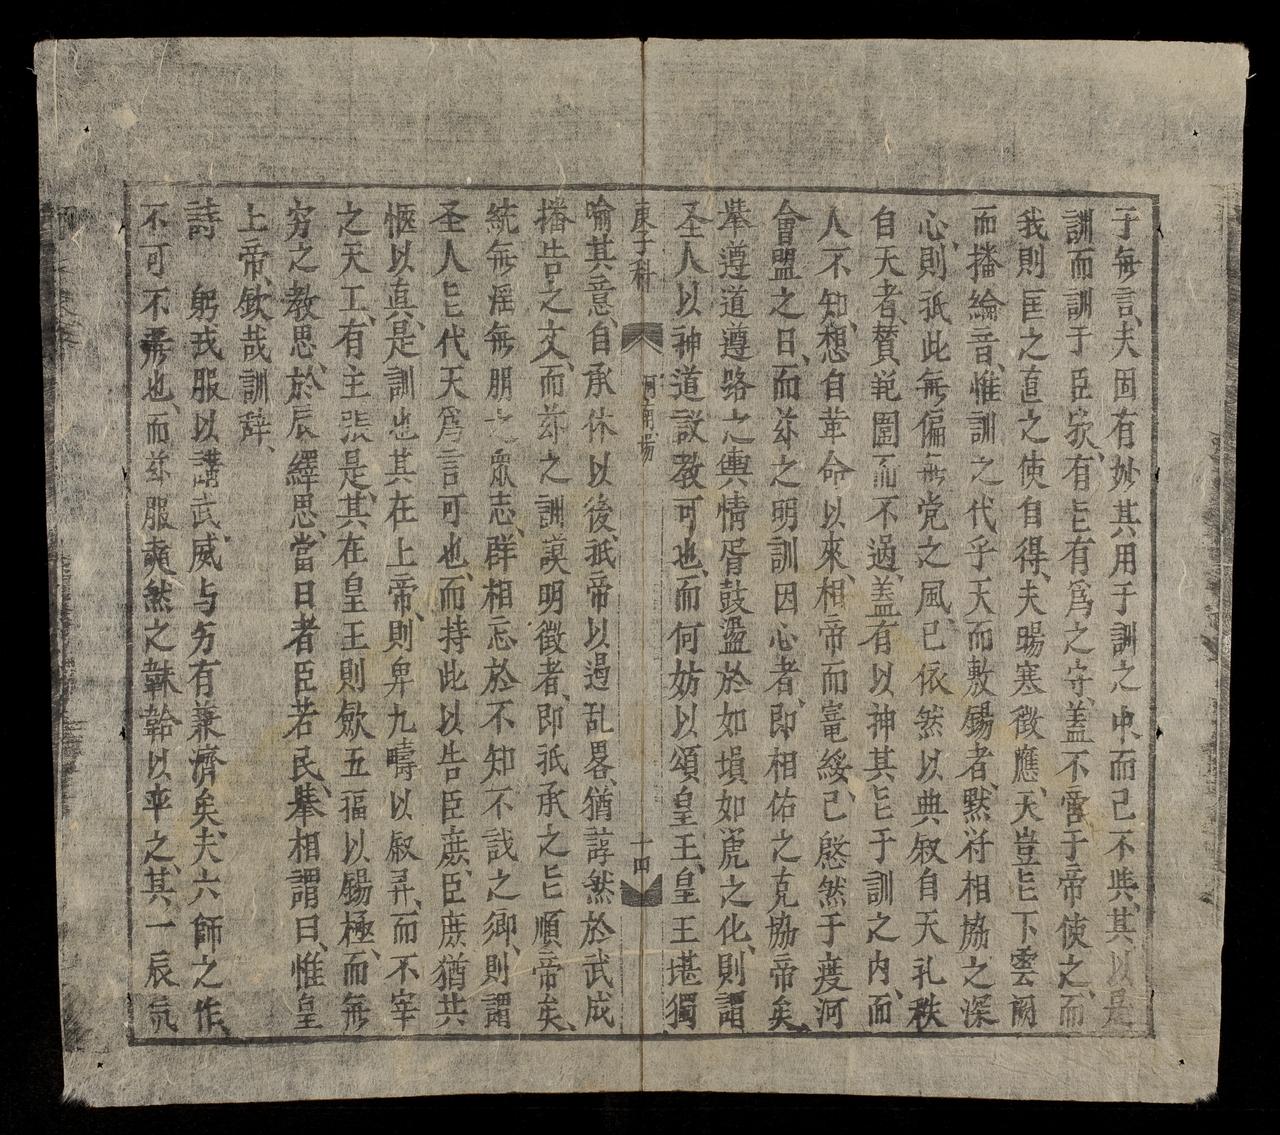 于無言、夫固有妙其用于訓之中而已不與、其以是
訓而訓于臣欤、有㠯有為之守、盖不啻于帝使之、而
我則匡之直之使自得、夫暘寒徵應、天豈㠯下雲闕
而播綸音、惟訓之代乎天而敷錫者、黙符相協之深
心、則祇此無偏無党之風、已依然以典叙自天礼秩
自天者、賛範圍而不過、盖有以神其㠯于訓之内、而
人不知、想自革命以來、相帝而寵綏、已愍然于度河
會盟之日、而茲之明訓因心者、即相佑之克協帝矣、
舉遵道遵路之輿情胥鼓盪於如塤如箎之化、則謂
圣人以神道設教可也、而何妨以頌皇王、皇王堪獨
庚子科 河南場 十四
喻其意、自承休以後、祇帝以遏乱畧、猶諄然於武成
播告之文、而茲之訓謨明徵者、即祇承之㠯順帝矣、
統無淫無朋之眾志、群相忘於不知不識之鄉、則謂
圣人㠯代天為言可也、而持此以告臣庶、臣庶猶共
愜以真、是訓也其在上帝、則畀九疇以叙昇、而不宰
之天工、有主張是、其在皇王則斂五福以錫極、而無
穷之教思、於辰繹思、當日者臣若民、舉相謂曰、惟皇
上帝、欽哉訓辞、
詩 躬戎服以講武、威与穷有兼濟矣、夫六師之作、
不可不豫也、而茲服奭然之韎韐以平之、其一辰気